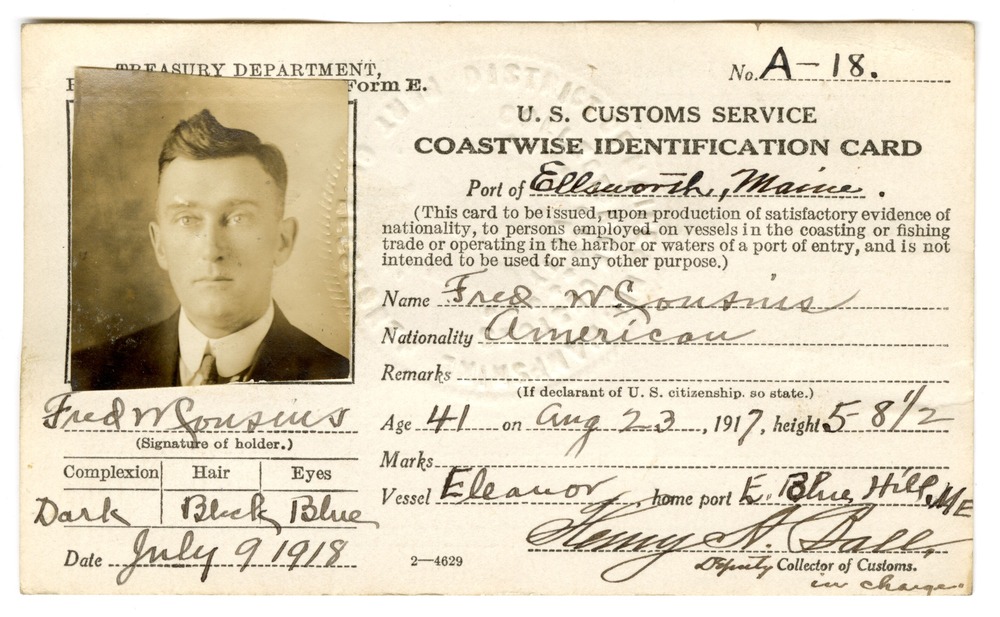 TREASURY DEPARTMENT,
Form E.
No. A-18.
U. S. CUSTOMS SERVICE
COASTWISE IDENTIFICATION CARD
Port of Ellsworth, Maine.
(This card to be issued, upon production of satisfactory evidence of
nationality, to persons employed on vessels in the coasting or fishing
trade or operating in the harbor or waters of a port of entry, and is not
intended to be used for any other purpose.)
Name Fred W Cousins
Nationality American
Remarks
(If declarant of U. S. citizenship, so state.)
Age 41 on Aug 23, 1917, height 5 8 1/2
Marks
Vessel Eleanor, home port E. Blue Hill, ME
Henry A. Ball,
Deputy Collector of Customs.
in charge"
Fred W Cousins
(Signature of holder.)
Complexion Hair Eyes
Dark Black Blue
Date July 9 1918
2—4629